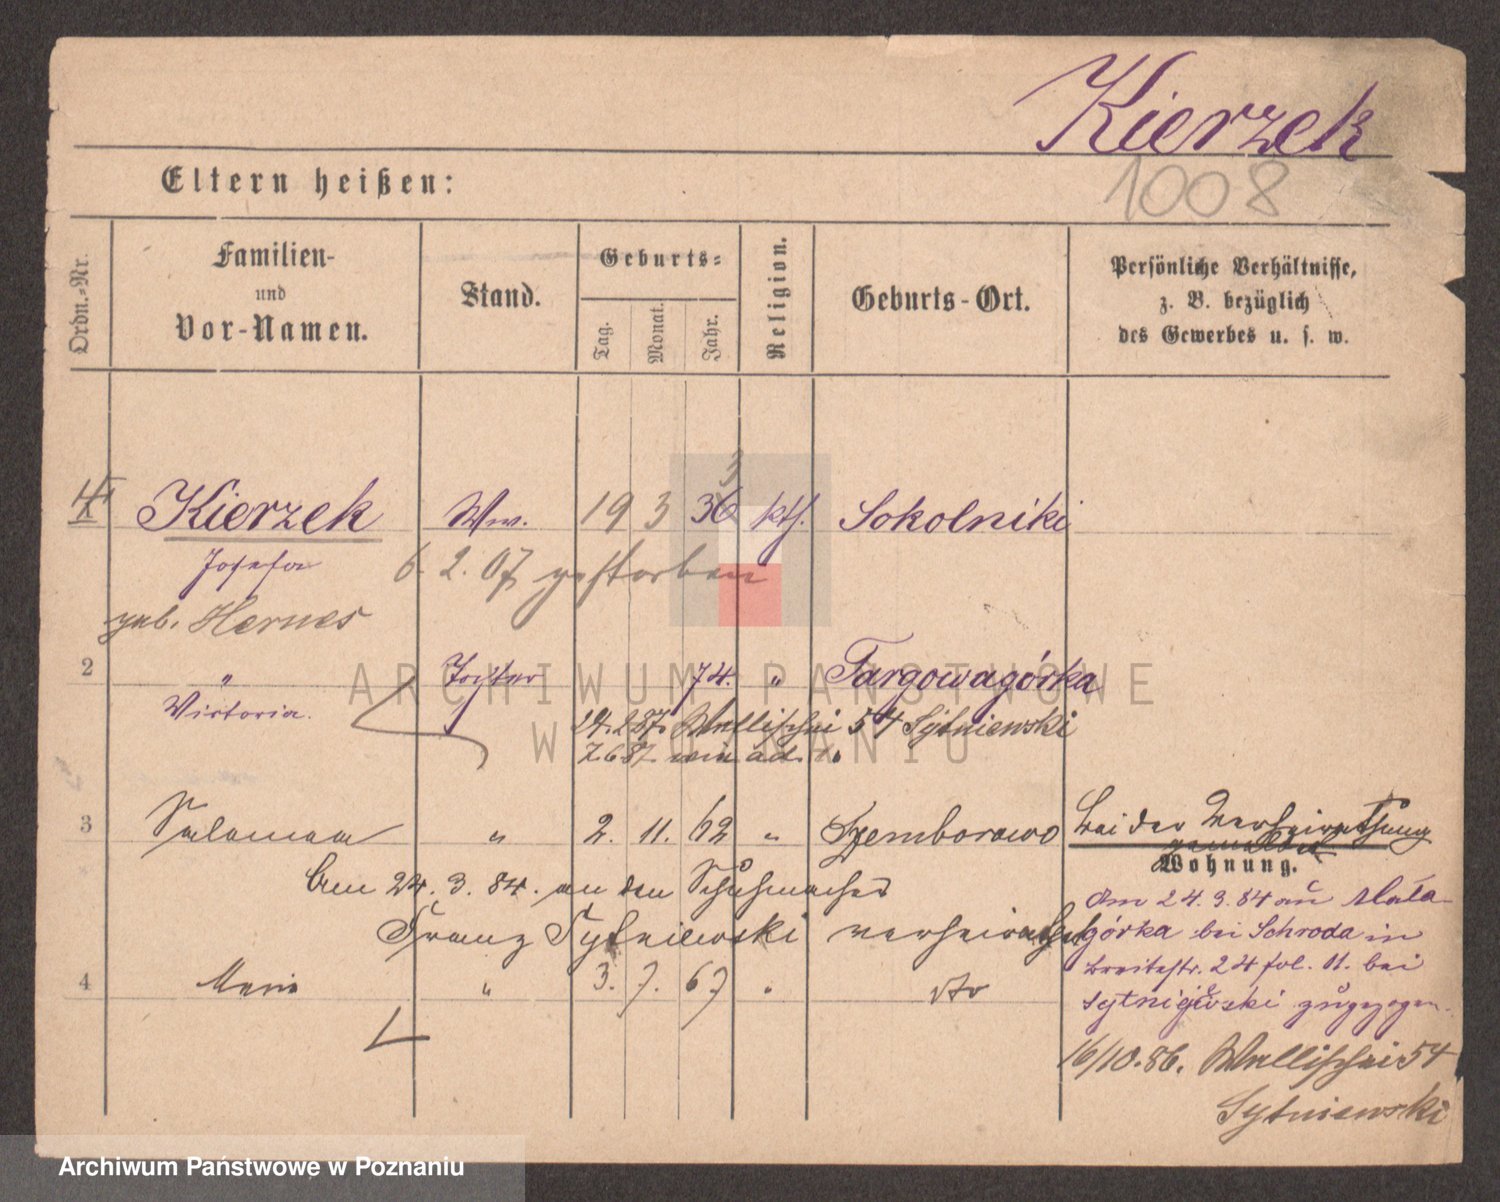 Kierzek
1008
Eltern heißen:
Ordn.-Nr.
Familien-
und
Vor-Namen.
Stand.
Geburts-
Tag.
Monat.
Jahr.
Religion.
Geburts-Ort.
Persönliche Verhältnisse,
z. B. bezüglich
des Gewerbes u. s. w.
3
Kierzek Ww. 19 3 36 kth. Sokolniki
Josefa 6. 2. 07 gestorben
geb. Hernes
2 " Tochter 74. " Targowagórka
Victoria. 24. 2 87. Wallischei 54 Sytniewski
7.6 87.
3 Salomea " 2. 11. 62 " Szemborowo bei der Verheirathung
gemeldet
Wohnung.
Am 24. 3. 84. an den Schuhmacher
Franz Sytniewski verheirathet
Am 24. 3. 84 aus Mala
górka bei Schroda in
Breitestr. 24 fol. 11. bei
Sytniewski zugezogen.
4 Marie " 3. 7. 67 " dto
16/10.86. Wallischei 54
Sytniewski
ARCHIWUM PAŃSTWOWE
W POZNANIU
Archiwum Państwowe w Poznaniu